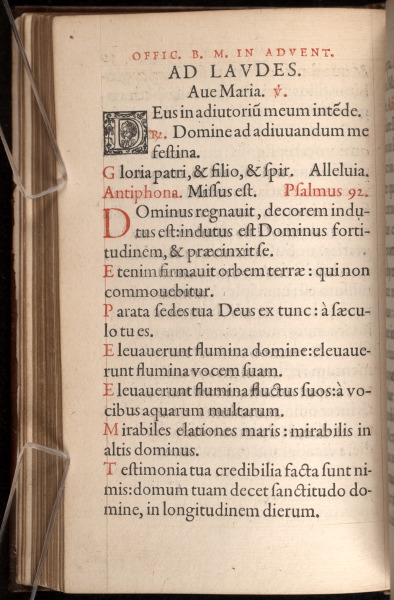 OFFIC. B. M. IN ADVENT.
AD LAVDES.
Aue Maria. ℣.
DEus in adiutoriū meum intēde.
℟. Domine ad adiuuandum me
feſtina.
Gloria patri, & filio, & ſpir. Alleluia.
Antiphona. Miſſus eſt. Pſalmus 92.
DOminus regnauit, decorem indu-
tus eſt: indutus eſt Dominus forti-
tudinem, & præcinxit ſe.
Etenim firmauit orbem terræ: qui non
commouebitur.
Parata ſedes tua Deus ex tunc: à ſæcu-
lo tu es.
Eleuauerunt flumina domine: eleuaue-
runt flumina vocem ſuam.
Eleuauerunt flumina fluctus ſuos: à vo-
cibus aquarum multarum.
Mirabiles elationes maris: mirabilis in
altis dominus.
Teſtimonia tua credibilia facta ſunt ni-
mis: domum tuam decet ſanctitudo do-
mine, in longitudinem dierum.